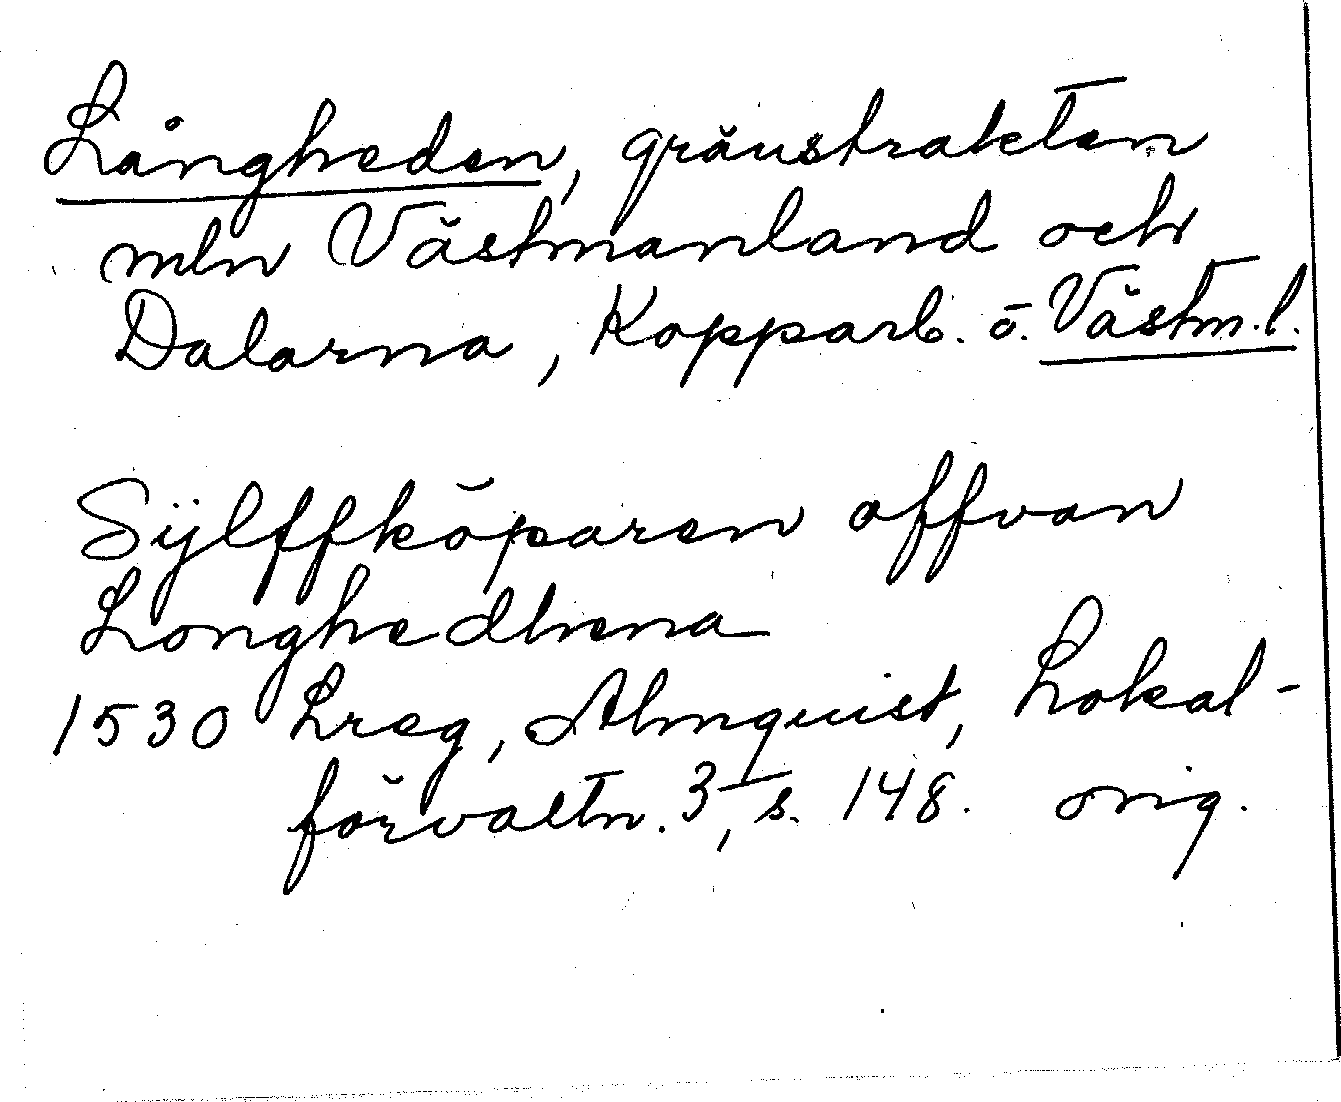 Långheden, gränstrakten
mln Västmanland och
Dalarna, Kopparb. o. Västm.l.
Sÿlffköparen affvan
Longhedhena
1530 Lreg, Almquist, Lokal-
förvaltn. 3, s. 148. orig.